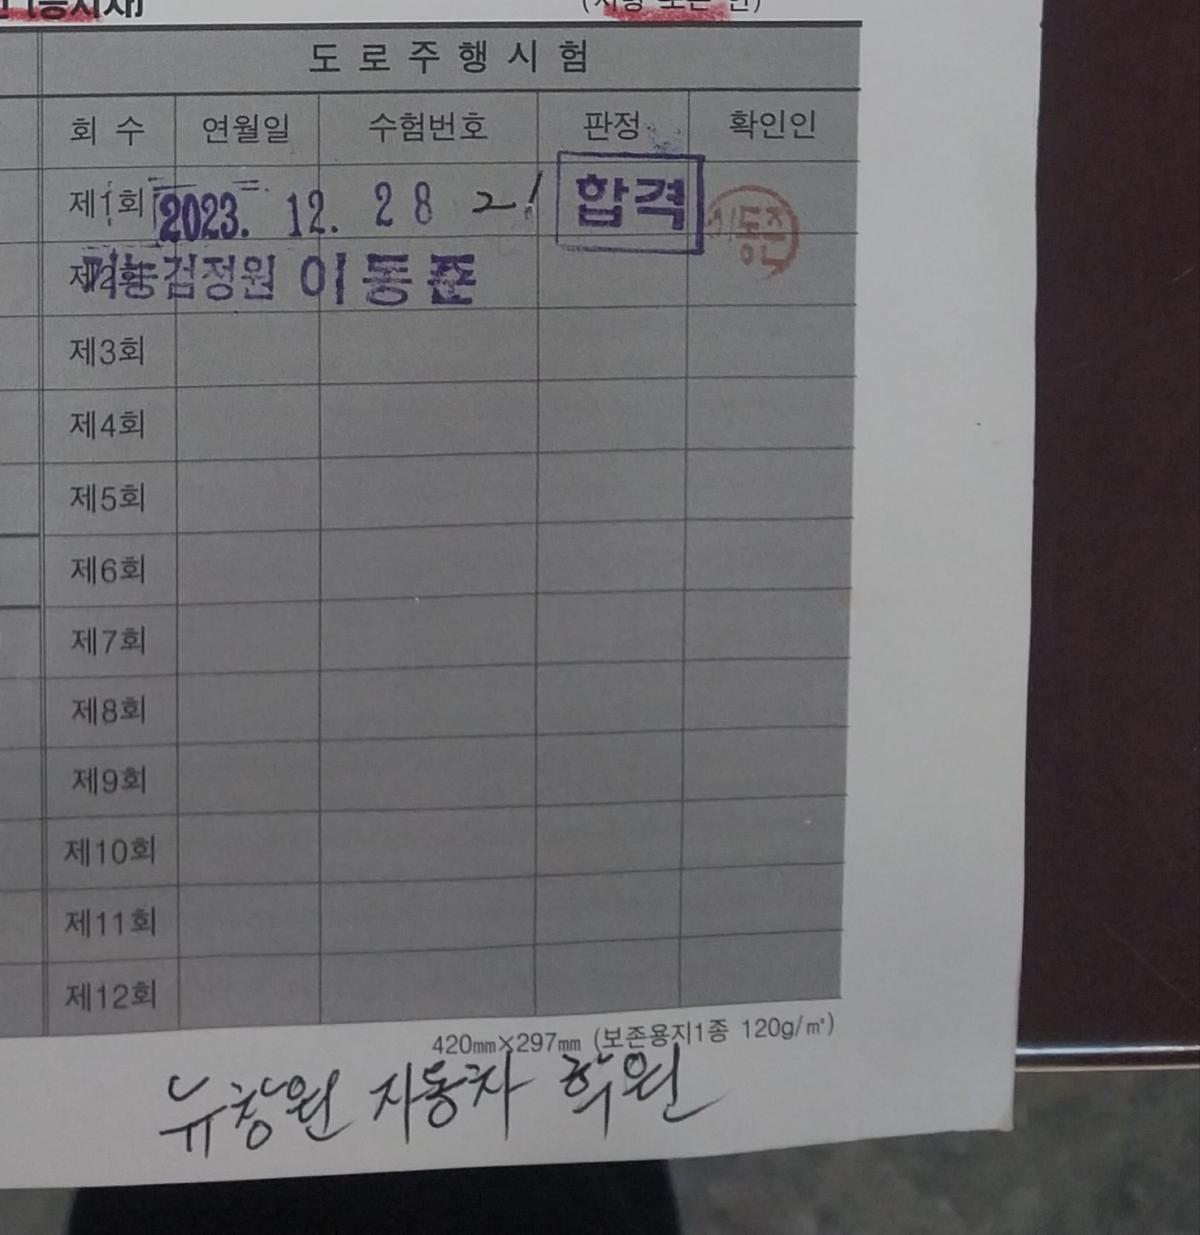 (응시자)
도로주행시험
회 수 연월일 수험번호 판정 확인인
제1회 2023. 12. 28 21 합격
제2회 기능검정원 이동준
제3회
제4회
제5회
제6회
제7회
제8회
제9회
제10회
제11회
제12회
420㎜×297㎜ (보존용지1종 120g/㎡)
뉴창원 자동차 학원